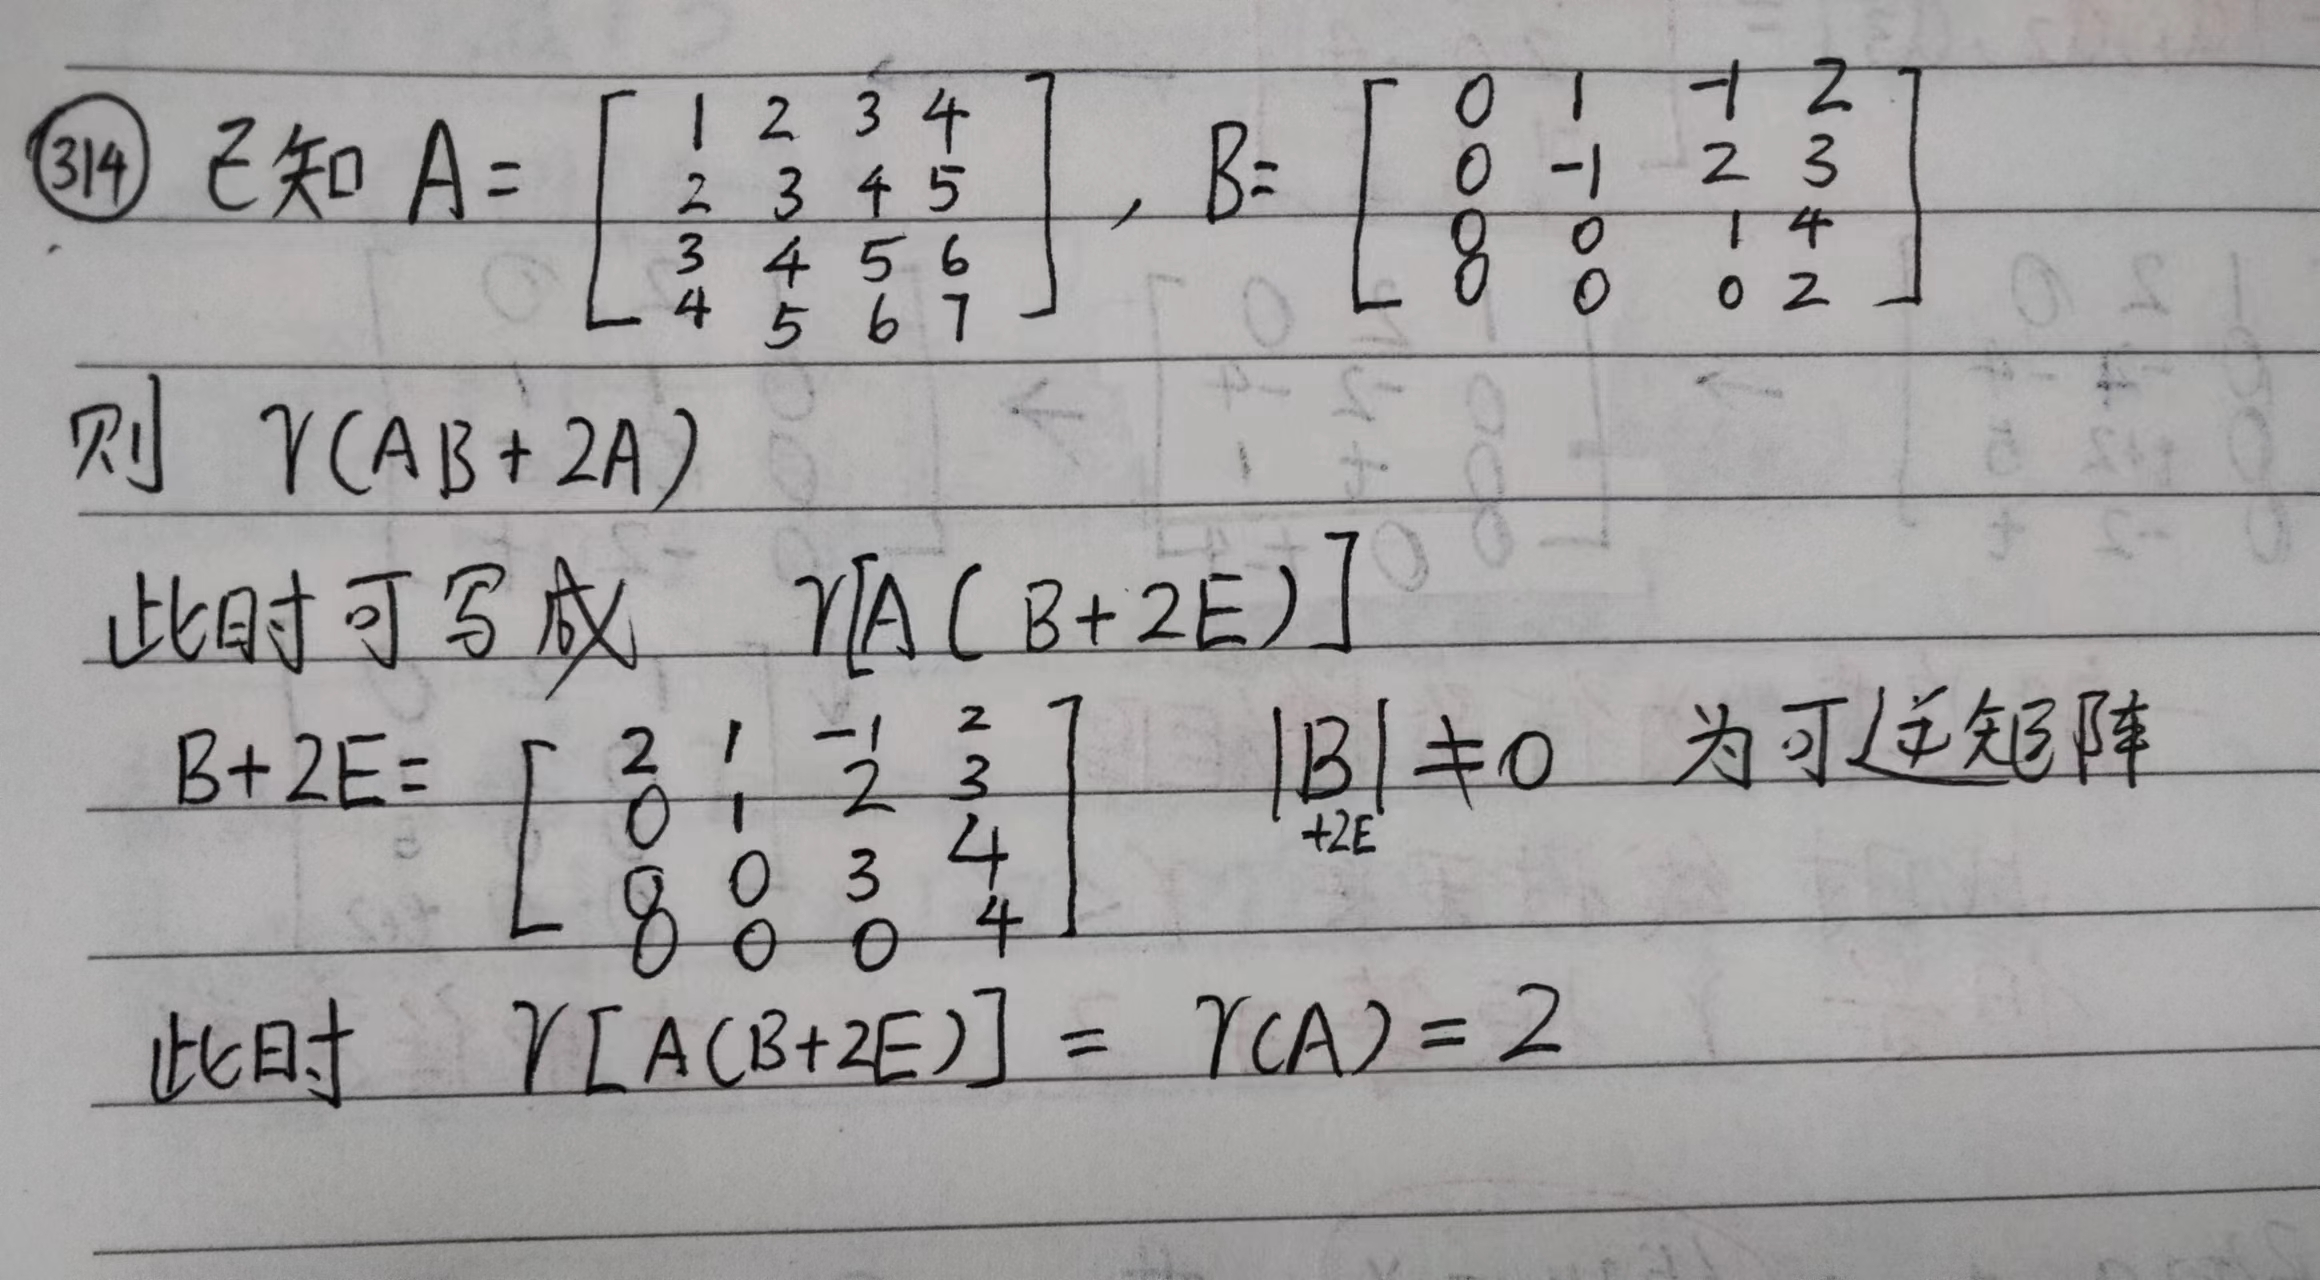 314 已知 A= [ 1 2 3 4 , B= [ 0 1 -1 2
2 3 4 5 0 -1 2 3
3 4 5 6 0 0 1 4
4 5 6 7 ] 0 0 0 2 ]
则 r(AB+2A)
此时可写成 r[A(B+2E)]
B+2E= [ 2 1 -1 2 |B+2E|≠0 为可逆矩阵
0 1 2 3
0 0 3 4
0 0 0 4 ]
此时 r[A(B+2E)] = r(A) = 2